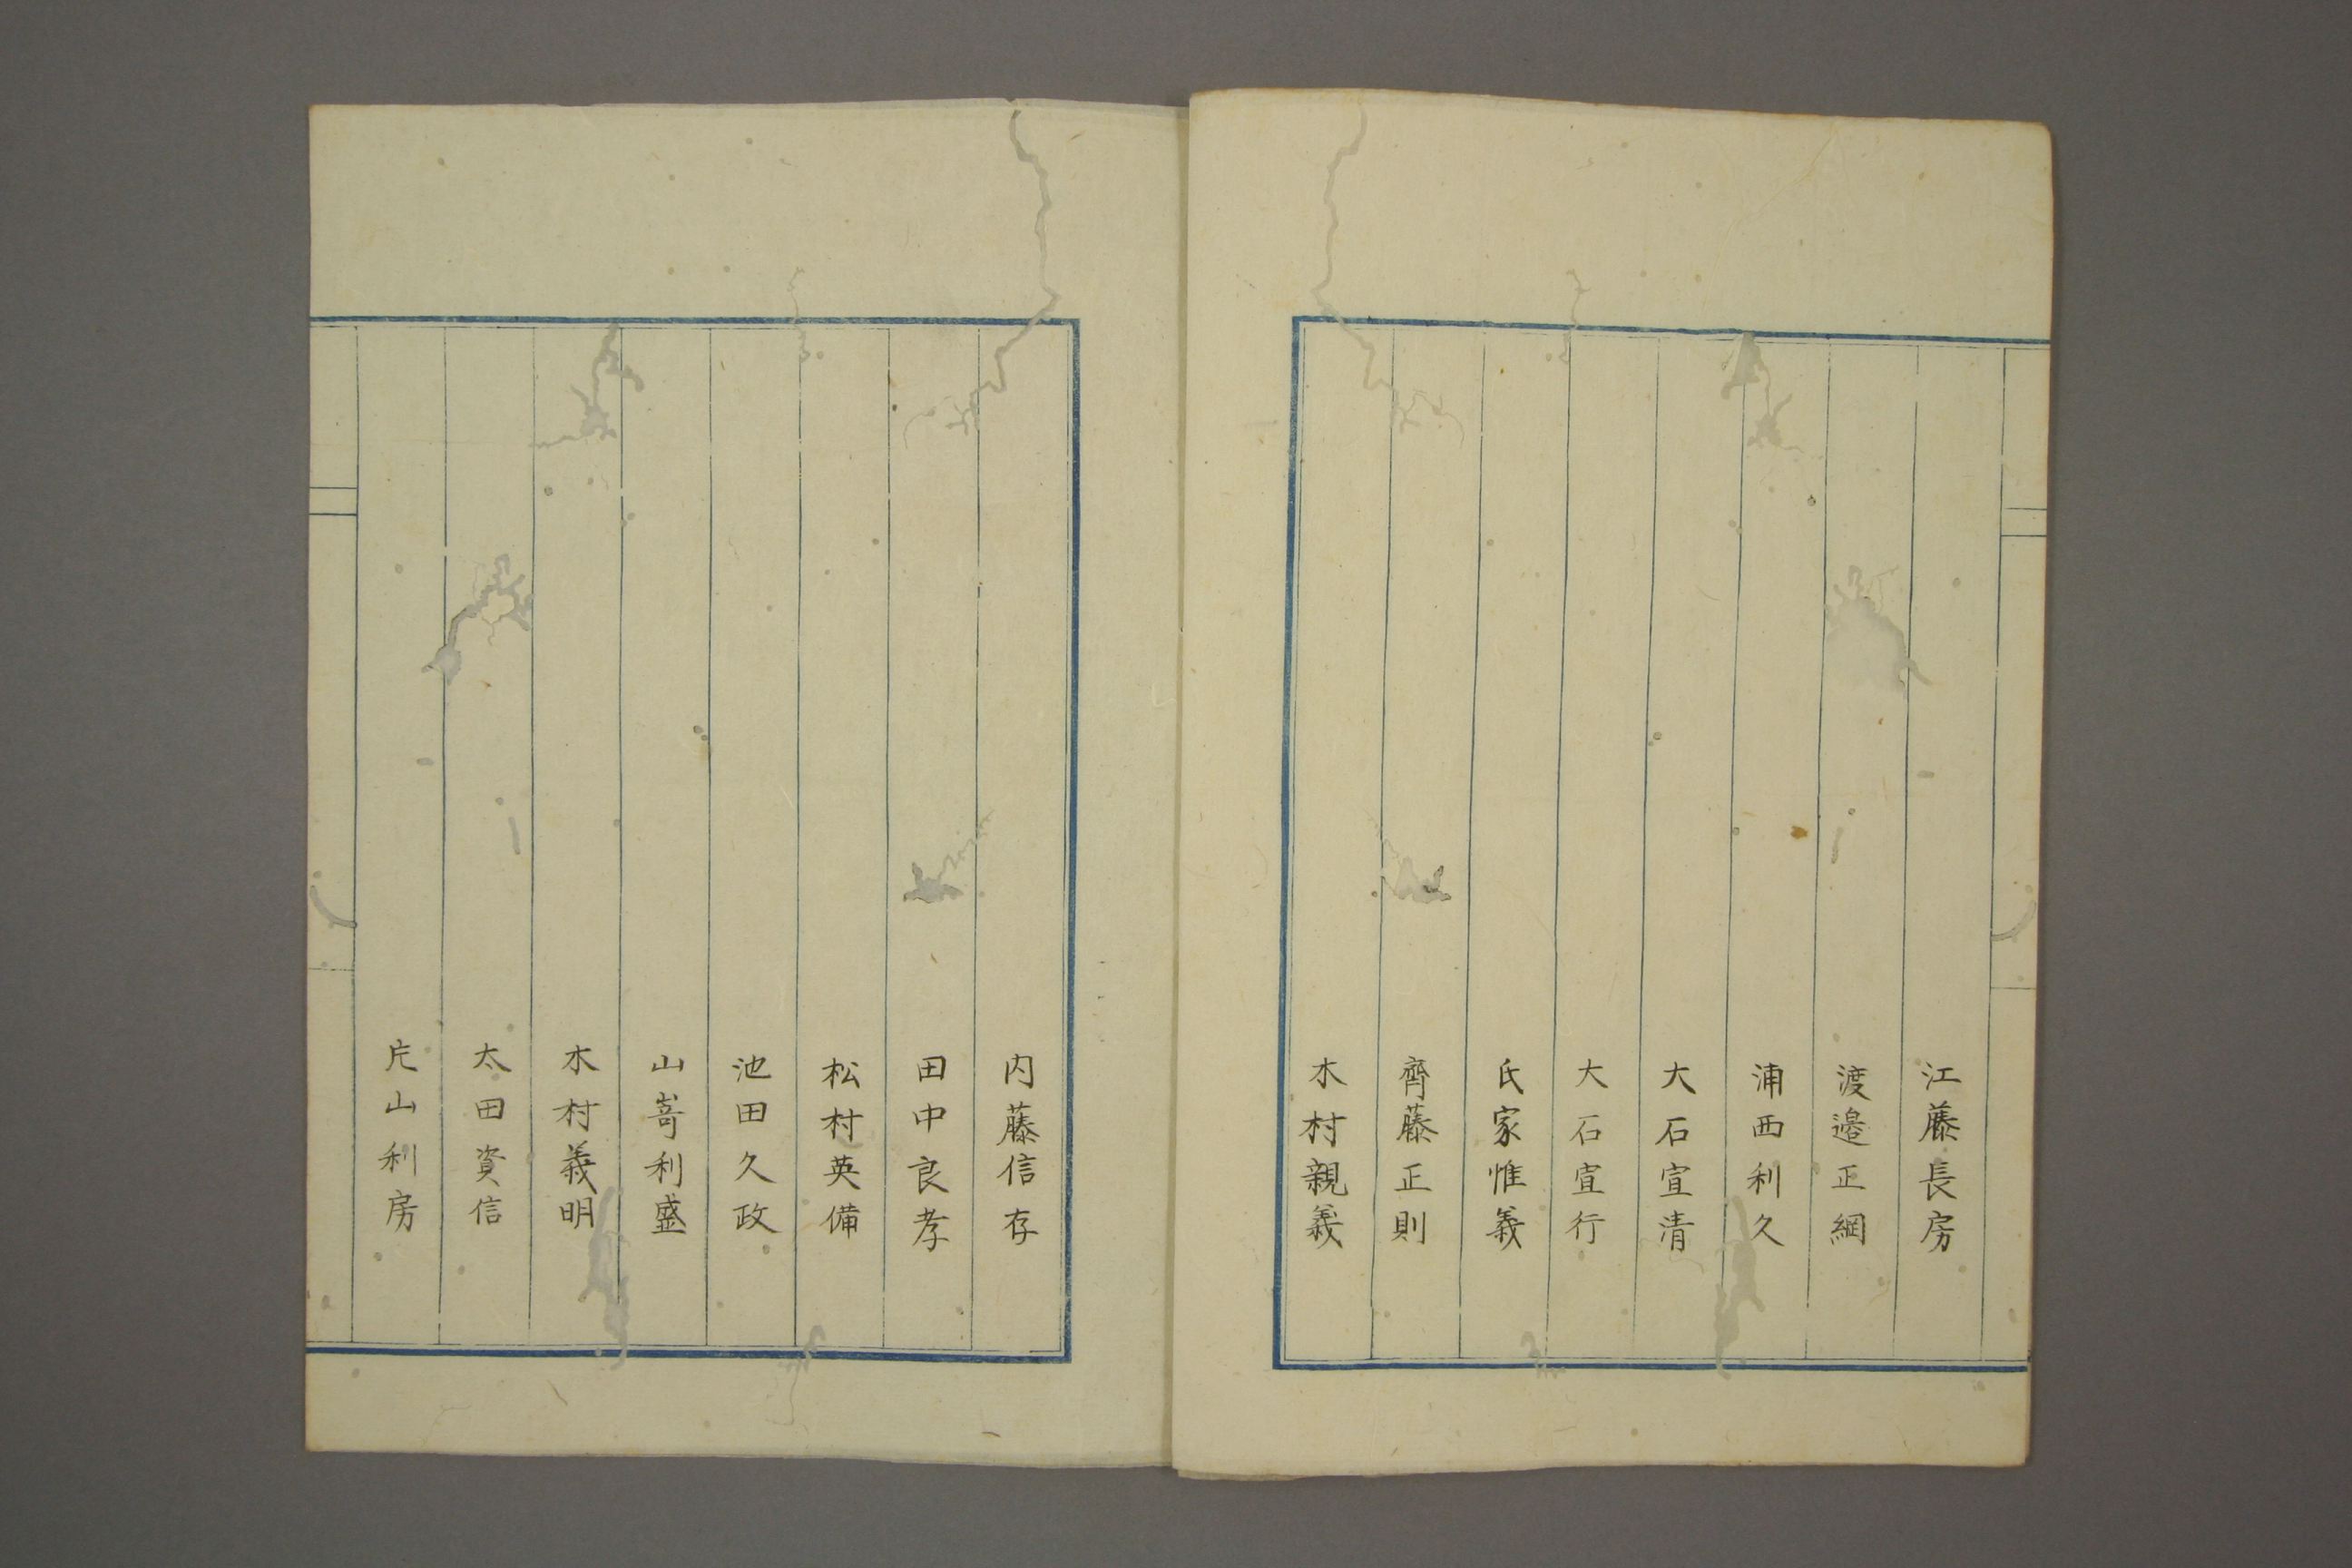 江藤長房
渡邉正綱
浦西利久
大石宣清
大石宣行
氏家惟義
齊藤正則
木村親義
内藤信存
田中良孝
松村英備
池田久政
山嵜利盛
木村義明
太田資信
片山利房